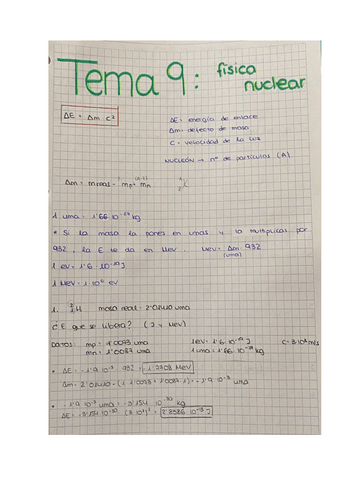 Tema 9: física
nuclear
ΔE = Δm c²
ΔE = energía de enlace
Δm = defecto de masa
c = velocidad de la luz
NUCLEÓN → nº de partículas (A)
Δm = mreal - mp + mn
1 uma = 1'66 10⁻²⁷ kg
* Si la masa la pones en umas y la multiplicas por
932, la E te da en Mev. Mev = Δm 932
(uma)
1 eV = 1'6 10⁻¹⁹ J
1 Mev = 1 10⁶ ev
1. H masa real = 2'01410 uma
¿E que se libera? (J y Mev)
DATOS: mp = 1'0073 uma 1ev = 1'6 10⁻¹⁹ J c = 3·10⁸ m/s
mn = 1'0087 uma 1 uma = 1'66 10⁻²⁷ kg
* ΔE = -1'9 10⁻³ 932 =
Δm = 2'01410 - (1 1'0073 + 1'0087·1) = -1'9 10⁻³ uma
* -1'9 10⁻³ uma = -3'154 10⁻³⁰ kg
ΔE = -3'154 10⁻³⁰ (3 10⁸)² = 2'8386 10⁻¹³ J